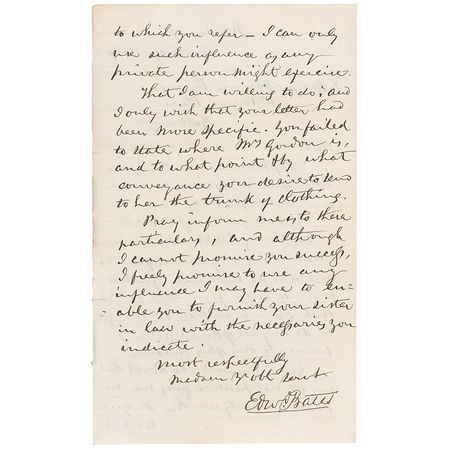 to which you refer — I can only
use such influence as any
private person might exercise.
That I am willing to do; and
I only wish that your letter had
been more specific. You failed
to state where Mrs Gordon is,
and to what point & by what
conveyance you desire to send
to her the trunk of clothing.
Pray inform me as to these
particulars, and although
I cannot promise you success,
I freely promise to use any
influence I may have to en=
able you to furnish your sister
in law with the necessaries you
indicate.
Most respectfully
Madam Yr obt servt
Edwd Bates